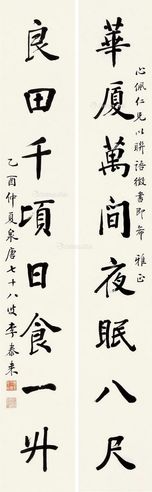 心佩仁兄以聯語徵書即希 雅正
華厦萬間夜眠八尺
良田千頃日食一升
乙酉仲夏泉唐七十八叟李泰來